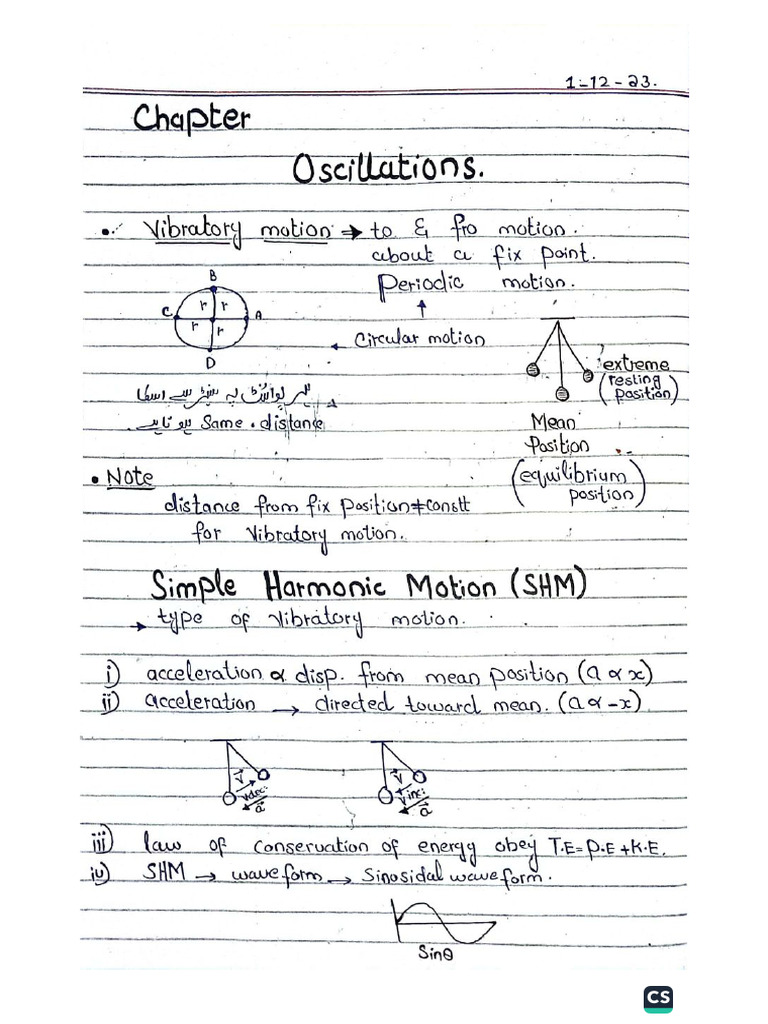 1-12-23.
Chapter
Oscillations.
• Vibratory motion → to & fro motion.
about a fix point.
Periodic motion.
↑
← Circular motion
B
C r r A
r r
D
ہر پوائنٹ پہ سینٹر سے اسکا
Same distance ہوتا ہے۔
extreme
(resting position)
Mean
Position
(equilibrium position)
• Note
distance from fix position ≠ constt
for vibratory motion.
Simple Harmonic Motion (SHM)
→ type of vibratory motion.
i) acceleration α disp. from mean position (a α x)
ii) acceleration → directed toward mean. (a α -x)
V⃗ V⃗
vdec: vinc:
a⃗ a⃗
iii) law of conservation of energy obey T.E=P.E+K.E.
iv) SHM → wave form → Sinosidal wave form.
Sinθ
CS